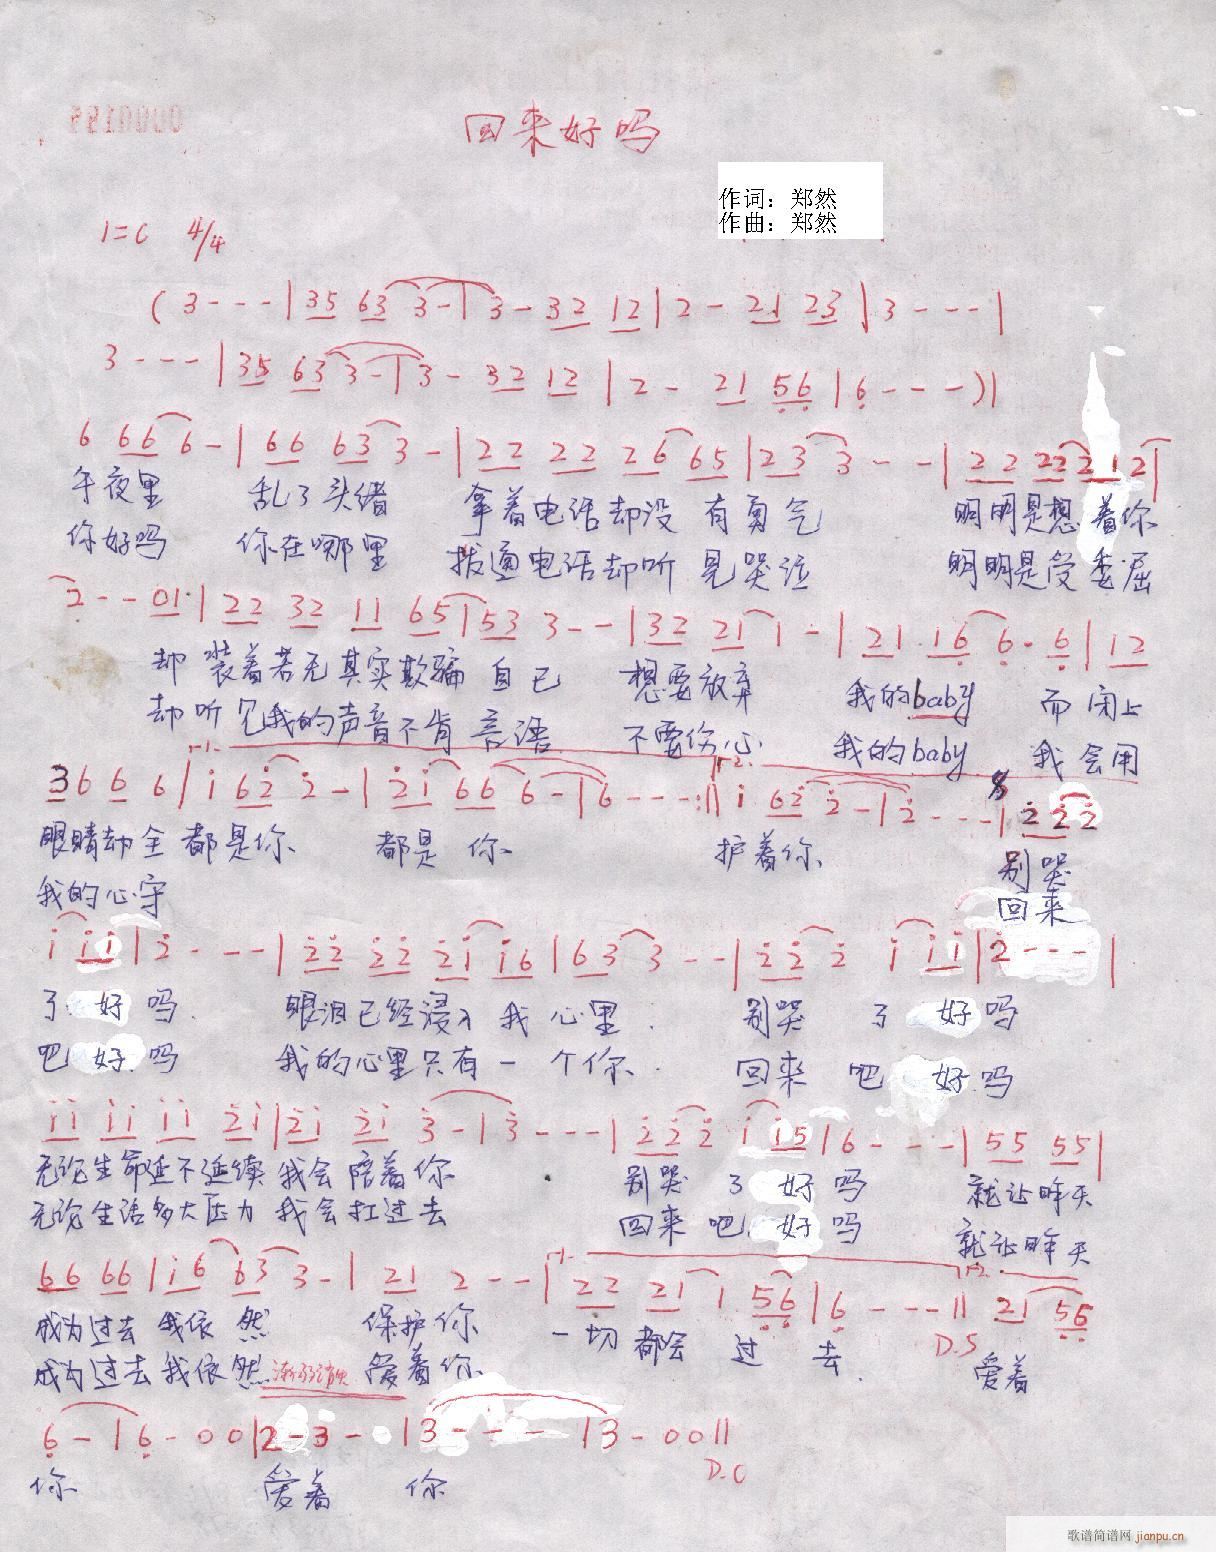 回来好吗
作词：郑然
作曲：郑然
1=C 4/4
(3---|35 63 3-|3-32 12|2-21 23|3---|
3---|35 63 3-|3-32 12|2-21 56|6---)|
6 66 6-|66 63 3-|22 22 26 65|23 3--|22 22 21 2|
午夜里 乱了头绪 拿着电话却没有勇气 明明是想着你
你好吗 你在哪里 拨通电话却听见哭泣 明明是受委屈
2--01·|22 32 11 65|53 3--|32 21 1-|21 16 6·6|12
却装着若无其实欺骗自己 想要放弃 我的baby 而闭上
却听见我的声音不肯言语 不要伤心 我的baby 我会用
36 6 6|i 62 2-|2i 66 6-|6---:|| i 62 2-|2---|2 22
眼睛却全都是你 都是你 护着你 别哭
我的心守 回来
i ii|2---|22 22 2i i6|63 3--|22 2 i ii|2---|
了 好吗 眼泪已经浸入我心里 别哭了 好吗
吧 好吗 我的心里只有一个你 回来吧 好吗
ii ii ii 2i|2i 2i 3-|3---|22 2 i i5|6---|55 55|
无论生命延不延续我会陪着你 别哭了 好吗 就让昨天
无论生活多大压力我会扛过去 回来吧 好吗 就让昨天
66 66|i6 63 3-|21 2--|22 21 1 56|6---|| 21 56
成为过去 我依然 保护你 一切都会过去 D.S 爱着
成为过去我依然 爱着你
6-|6-00|2-3-·|3---|3-00||
D.C
你 爱着 你
歌谱简谱网 jianpu.cn